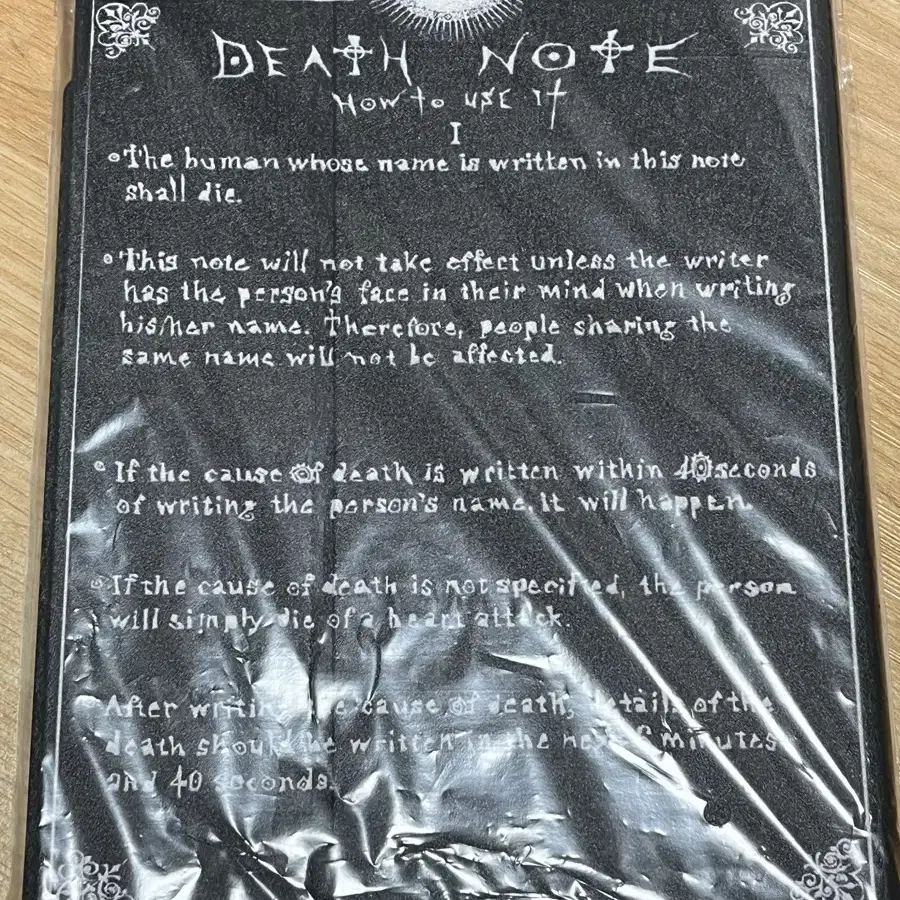 DEATH NOTE
HOW to USE IT
I
The human whose name is written in this note
shall die.
This note will not take effect unless the writer
has the person's face in their mind when writing
his/her name. Therefore, people sharing the
same name will not be affected.
If the cause of death is written within 40seconds
of writing the person's name, it will happen.
If the cause of death is not specified, the person
will simply die of a heart attack.
After writing the cause of death, details of the
death should be written in the next 6 minutes
and 40 seconds.